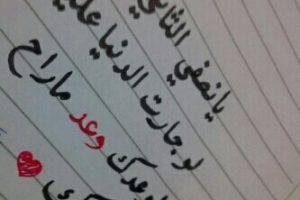 يانصفي الثاني
لو جارت الدنيا عليـ
وعد ماراح